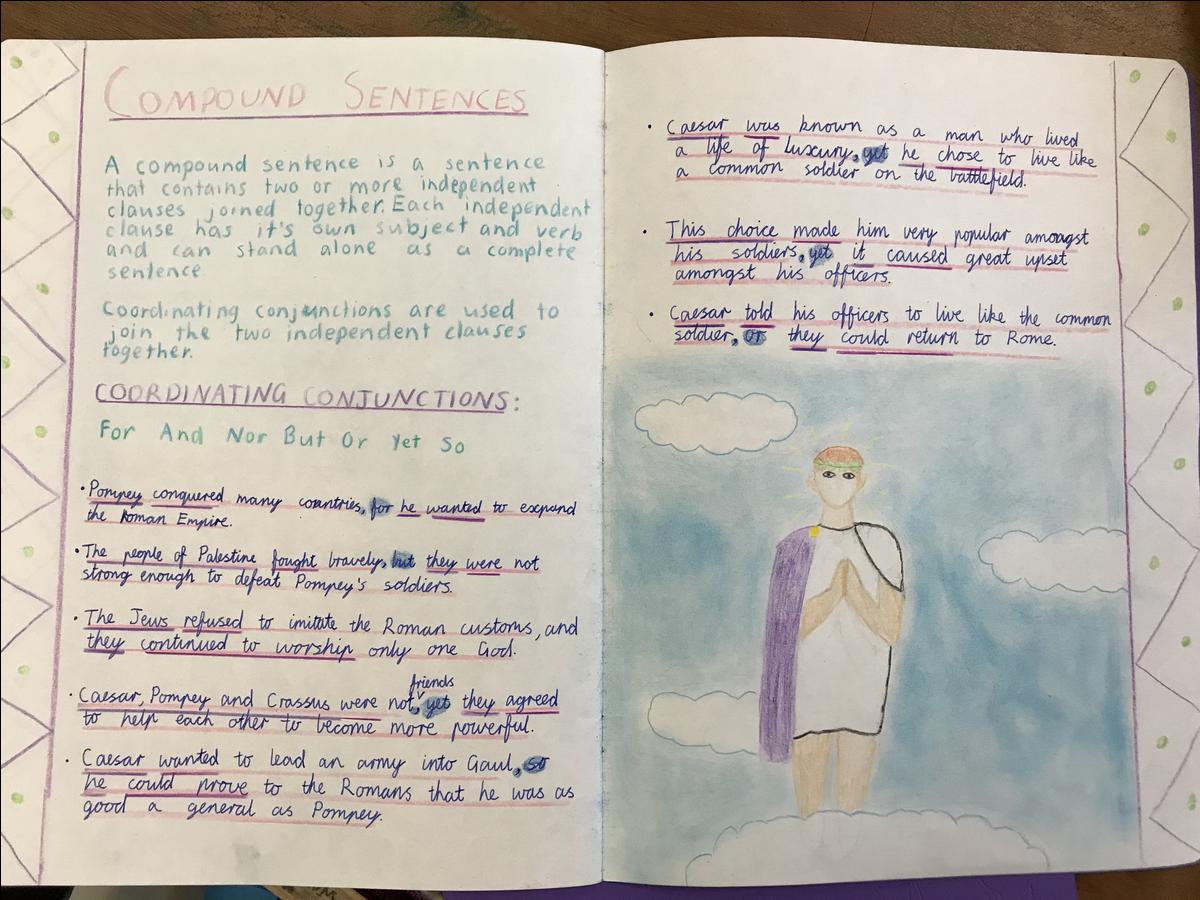 COMPOUND SENTENCES
A compound sentence is a sentence
that contains two or more independent
clauses joined together. Each independent
clause has it's own subject and verb
and can stand alone as a complete
sentence.
Coordinating conjunctions are used to
join the two independent clauses
together.
COORDINATING CONJUNCTIONS:
For And Nor But Or Yet So
• Pompey conquered many countries, for he wanted to expand
the Roman Empire.
• The people of Palestine fought bravely, but they were not
strong enough to defeat Pompey's soldiers.
• The Jews refused to imitate the Roman customs, and
they continued to worship only one God.
friends
• Caesar, Pompey and Crassus were not, yet they agreed
to help each other to become more powerful.
• Caesar wanted to lead an army into Gaul, so
he could prove to the Romans that he was as
good a general as Pompey.
• Caesar was known as a man who lived
a life of luxury, yet he chose to live like
a common soldier on the battlefield.
• This choice made him very popular amongst
his soldiers, yet it caused great upset
amongst his officers.
• Caesar told his officers to live like the common
soldier, or they could return to Rome.